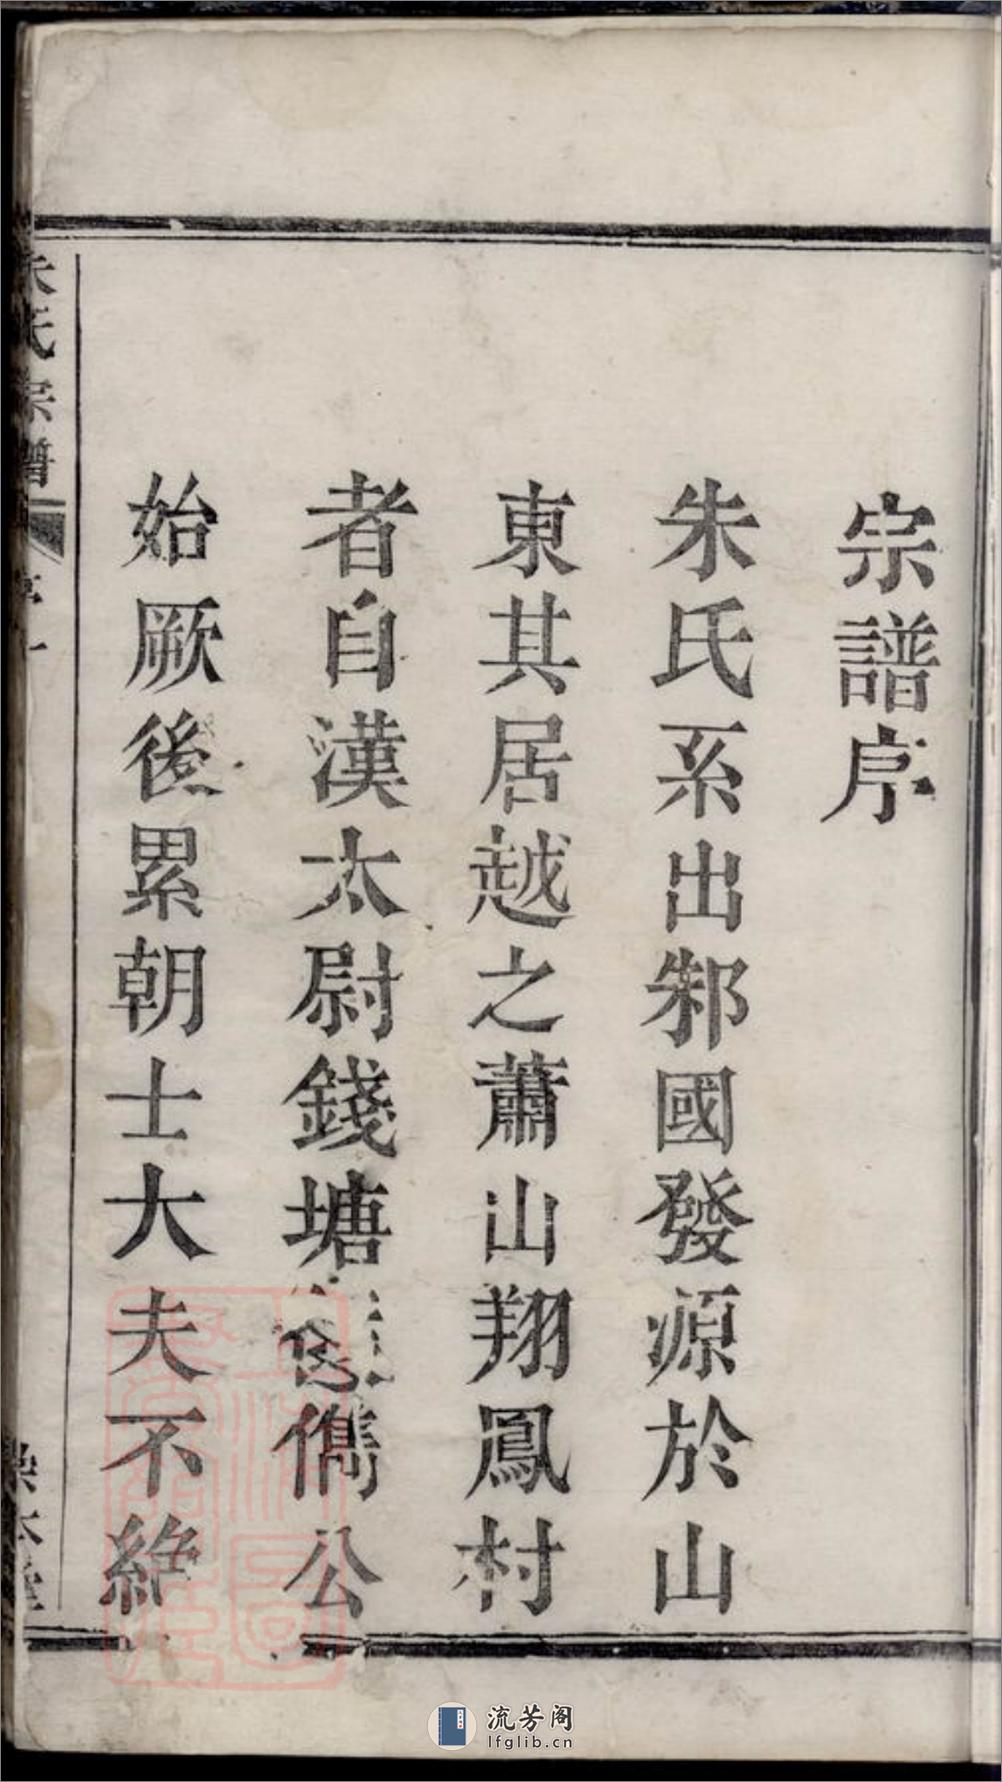 宗譜序
朱氏系出邾國發源於山
東其居越之蕭山翔鳳村
者自漢太尉錢塘儁公
始厥後累朝士大夫不絶
朱氏宗譜
序一
流芳阁
lfglib.cn